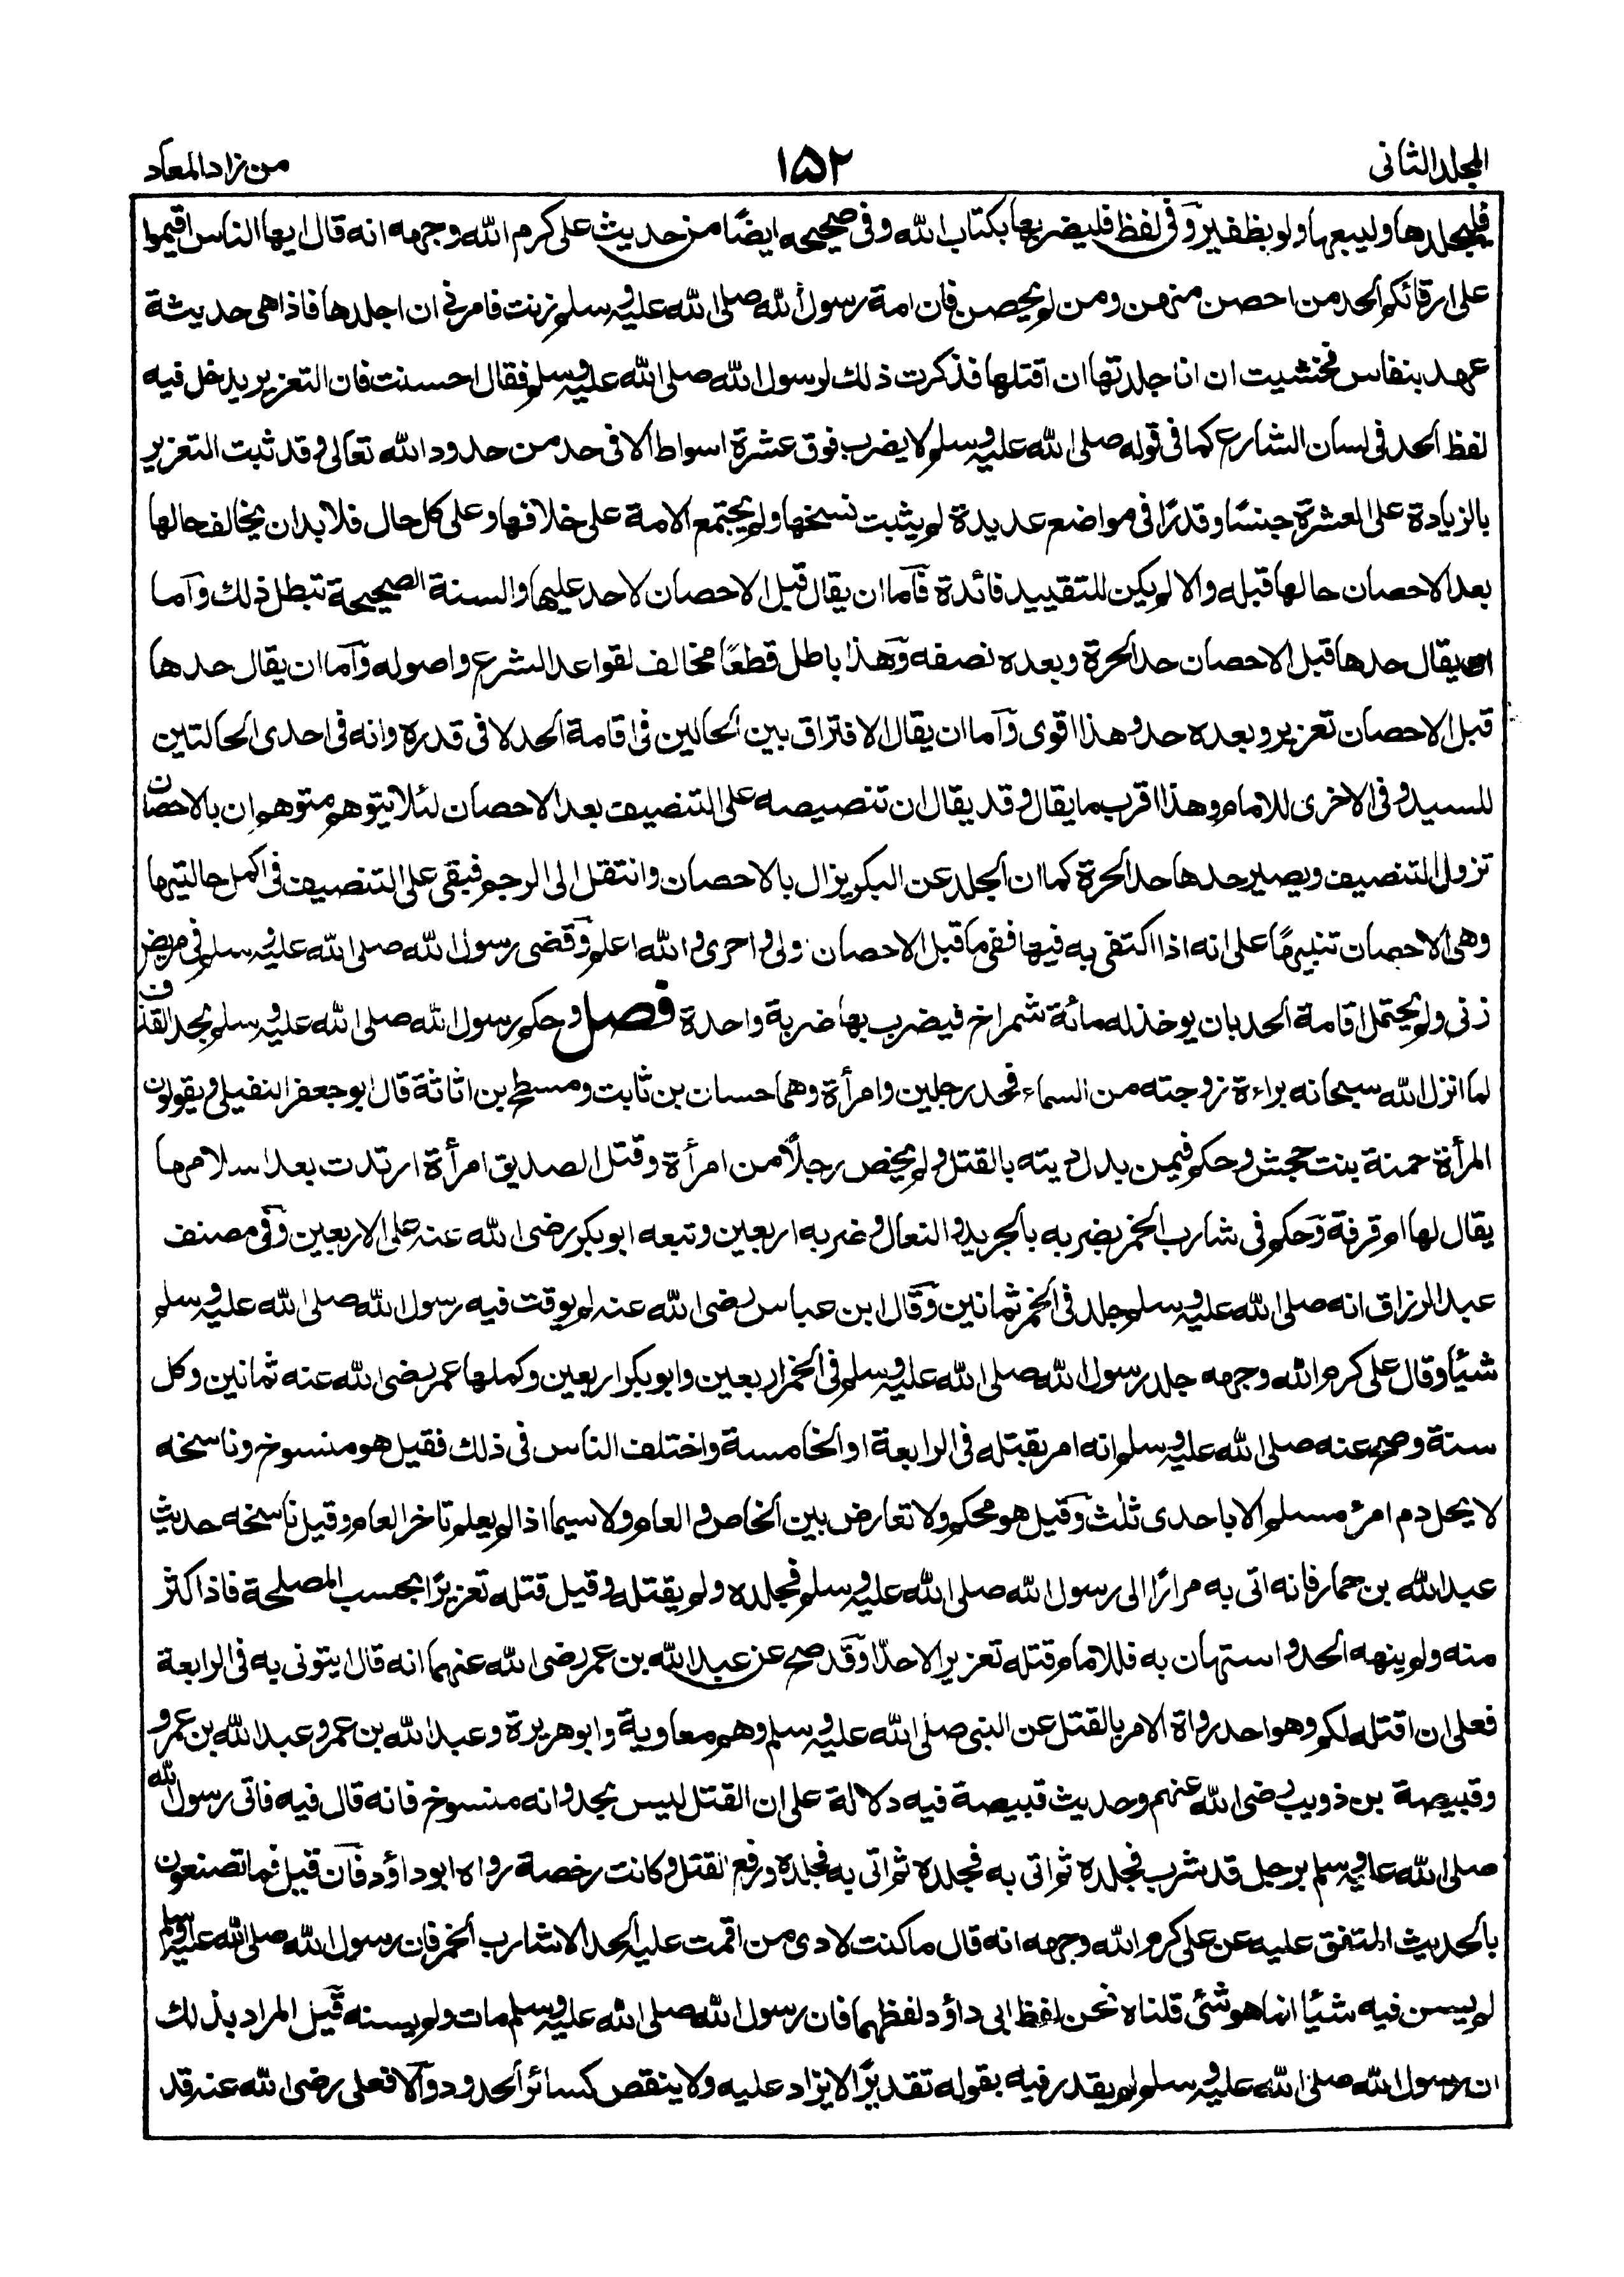 المجلد الثانى ١٥٢ من زاد المعاد
فليجلدها وليبعها ولو بظفير وفى لفظ فليضربها بكتاب الله وفى صحيحه ايضًا من حديث على كرم الله وجهه انه قال ايها الناس اقيموا
على ارقائكم الحد من احصن منهن ومن لم يحصن فان امة رسول الله صلى الله عليه وسلم زنت فامرنى ان اجلدها فاذا هى حديثة
عهد بنفاس فخشيت ان انا جلدتها ان اقتلها فذكرت ذلك لرسول الله صلى الله عليه وسلم فقال احسنت فان التعزير يدخل فيه
لفظ الحد فى لسان الشارع كما فى قوله صلى الله عليه وسلم لا يضرب فوق عشرة اسواط الا فى حد من حدود الله تعالى وقد ثبت التعزير
بالزيادة على العشرة جنسًا وقدرًا فى مواضع عديدة لم يثبت نسخها ولم يجتمع الامة على خلافها وعلى كل حال فلا بد ان يخالف حالها
بعد الاحصان حالها قبله والا لم يكن للتقييد فائدة فاما ان يقال قبل الاحصان لا حد عليها والسنة الصحيحة تبطل ذلك واما
ان يقال حدها قبل الاحصان حد الحرة وبعده نصفه وهذا باطل قطعًا مخالف لقواعد الشرع واصوله واما ان يقال حدها
قبل الاحصان تعزير وبعده حد وهذا اقوى واما ان يقال الافتراق بين الحالين فى اقامة الحد لا فى قدره وانه فى احدى الحالتين
للسيد وفى الاخرى للامام وهذا اقرب ما يقال وقد يقال ان تنصيصه على التنصيف بعد الاحصان لئلا يتوهم متوهم ان بالاحصان
تزول التنصيف ويصير حدها حد الحرة كما ان الجلد عن البكر يزال بالاحصان وانتقل الى الرجم فبقى على التنصيف فى اكمل حالتيها
وهى الاحصان تنبيهًا على انه اذا اكتفى به فيها ففى ما قبل الاحصان اولى واحرى والله اعلم وقضى رسول الله صلى الله عليه وسلم فى مريض
زنى ولم يحتمل اقامة الحد بان يوخذ له مائة شمراخ فيضرب بها ضربة واحدة فصل وحكم رسول الله صلى الله عليه وسلم بحد القذف
لما انزل الله سبحانه براءة زوجته من السماء فحد رجلين وامرأة وهما حسان بن ثابت ومسطح بن اثاثة قال ابو جعفر النفيلى ويقولون
المرأة حمنة بنت جحش وحكم فيمن بدل دينه بالقتل ولم يخص رجلًا من امرأة وقتل الصديق امرأة ارتدت بعد اسلامها
يقال لها ام قرفة وحكم فى شارب الخمر بضربه بالجريد والنعال وضربه اربعين وتبعه ابو بكر رضى الله عنه على الاربعين وفى مصنف
عبد الرزاق انه صلى الله عليه وسلم جلد فى الخمر ثمانين وقال ابن عباس رضى الله عنه لم يوقت فيه رسول الله صلى الله عليه وسلم
شيًا وقال على كرم الله وجهه جلد رسول الله صلى الله عليه وسلم فى الخمر اربعين وابو بكر اربعين وكملها عمر رضى الله عنه ثمانين وكل
سنة وصح عنه صلى الله عليه وسلم انه امر بقتله فى الرابعة او الخامسة واختلف الناس فى ذلك فقيل هو منسوخ وناسخه
لا يحل دم امرئ مسلم الا باحدى ثلث وقيل هو محكم ولا تعارض بين الخاص والعام ولا سيما اذا لم يعلم تاخر العام وقيل ناسخه حديث
عبد الله بن حمار فانه اتى به مرارًا الى رسول الله صلى الله عليه وسلم فجلده ولم يقتله وقيل قتله تعزيرًا بحسب المصلحة فاذا كثر
منه ولم ينهه الحد واستهان به فللامام قتله تعزيرا لا حدًا وقد صح عن عبد الله بن عمر رضى الله عنهما انه قال ايتونى به فى الرابعة
فعلى ان اقتله لكم وهو احد رواة الامر بالقتل عن النبى صلى الله عليه وسلم وهم معاوية وابو هريرة وعبد الله بن عمر وعبد الله بن عمرو
وقبيصة بن ذويب رضى الله عنهم وحديث قبيصة فيه دلالة على ان القتل ليس بحد وانه منسوخ فانه قال فيه فاتى رسول الله
صلى الله عليه وسلم برجل قد شرب فجلده ثم اتى به فجلده ثم اتى به فجلده ورفع القتل وكانت رخصة رواه ابو داؤد فان قيل فما تصنعون
بالحديث المتفق عليه عن على كرم الله وجهه انه قال ما كنت لادى من اقمت عليه الحد الا شارب الخمر فان رسول الله صلى الله عليه وسلم
لم يسن فيه شيًا انما هو شئ قلناه نحن لفظ ابى داؤد لفظهما فان رسول الله صلى الله عليه وسلم مات ولم يسنه قيل المراد بذلك
ان رسول الله صلى الله عليه وسلم لم يقدر فيه بقوله تقديرًا لا يزاد عليه ولا ينقص كسائر الحدود والا فعلى رضى الله عنه قد